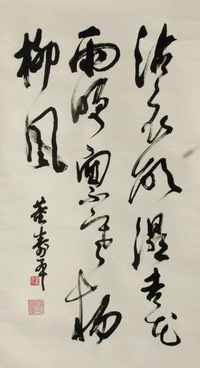 沾衣欲湿杏花
雨吹面不寒杨
柳风
董寿平